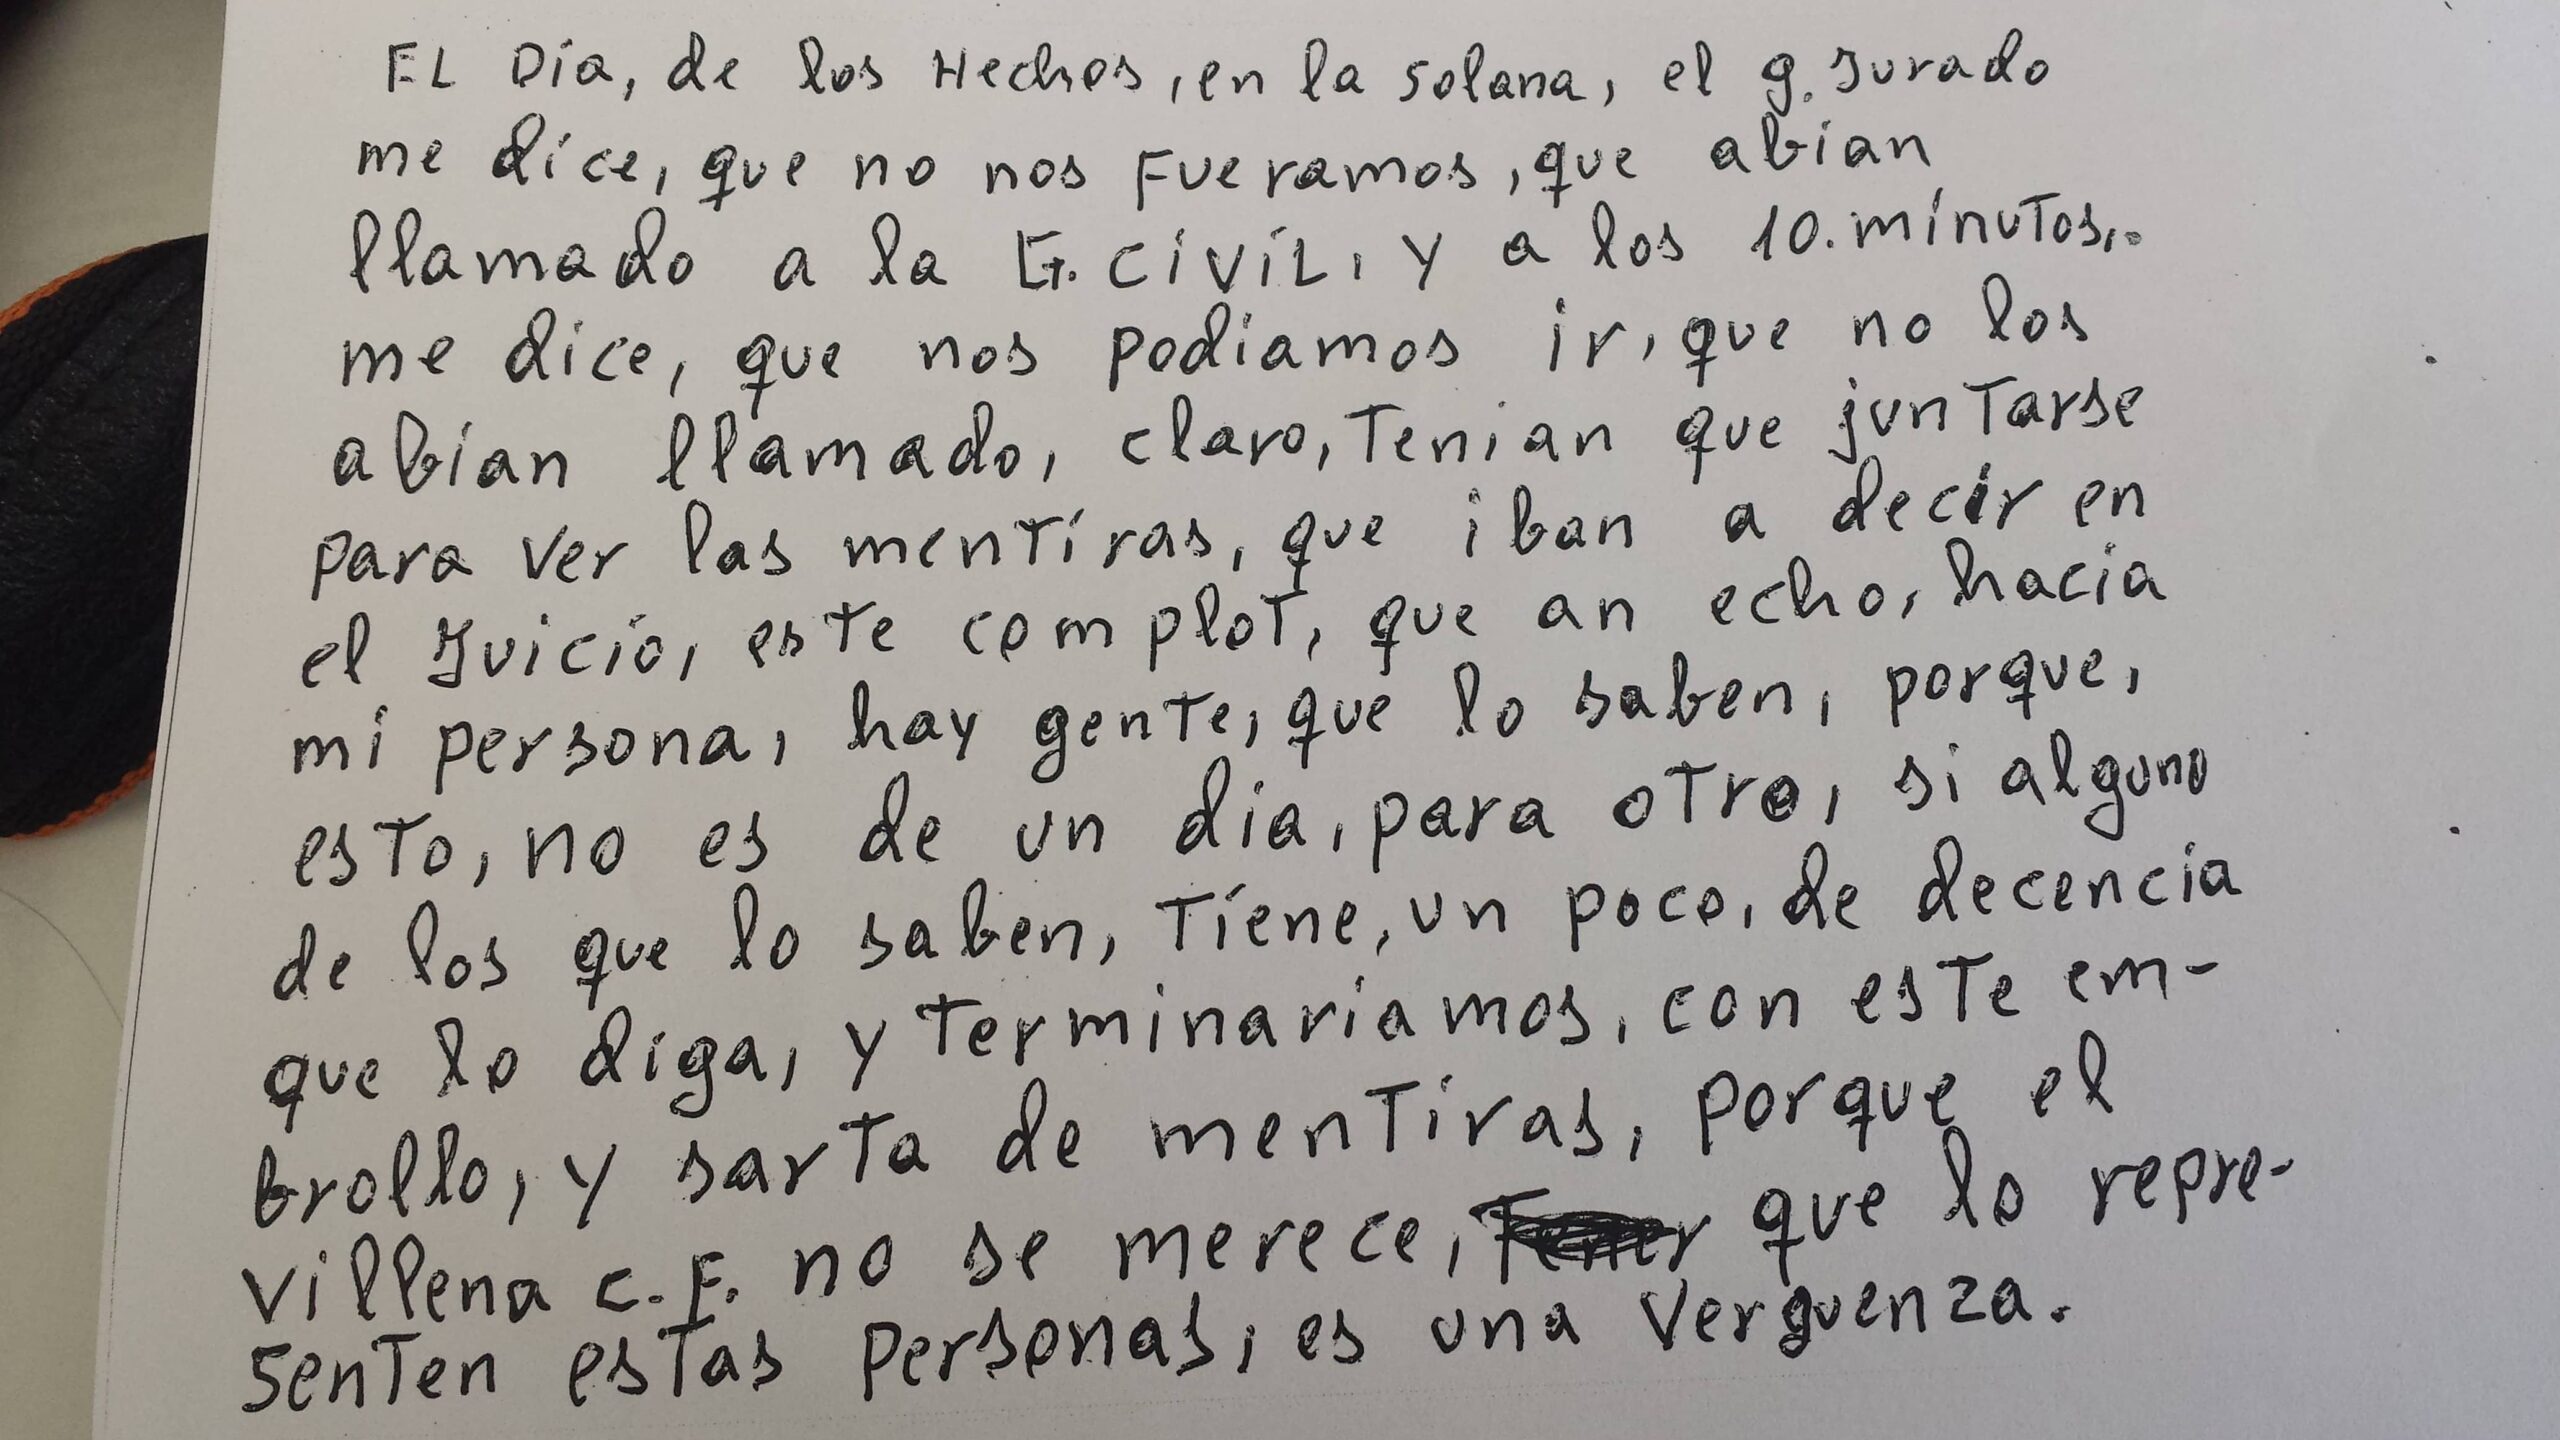 EL Día, de los Hechos, en la solana, el g. Jurado
me dice, que no nos Fueramos, que abian
llamado a la G. CiViL, y a los 10. minutos,.
me dice, que nos podiamos ir, que no los
abian llamado, claro, Tenian que junTarse
para ver las menTiras, que iban a decir en
el Juicio, este complot, que an echo, hacia
mi persona, hay gente, que lo saben, porque,
esto, no es de un dia, para otro, si alguno
de los que lo saben, Tiene, un poco, de decencia
que lo diga, y Terminariamos, con este em-
brollo, y sarta de menTiras, porque el
Villena C.F. no se merece, que lo repre-
senten estas personas, es una Verguenza.